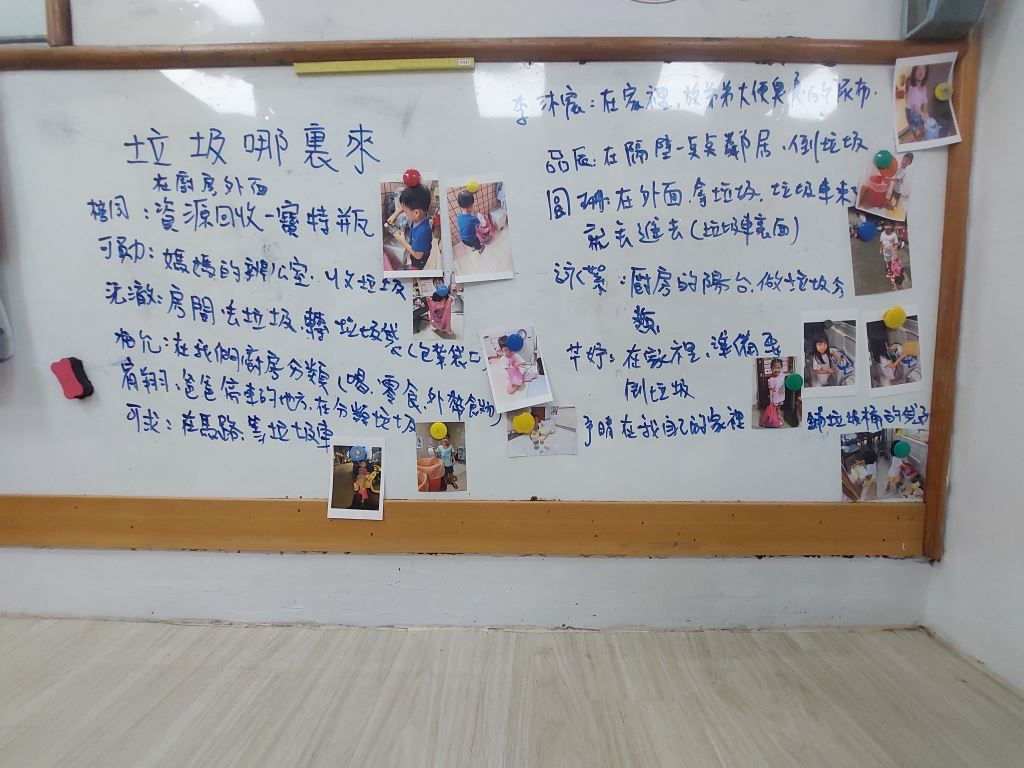 垃圾哪裏來
在廚房外面
：資源回收-寶特瓶
可勛：媽媽的辦公室.收垃圾
房間.丟垃圾.轉垃圾袋
(包紮袋口)
在我們廚房分類(喝、零食、外帶食物)
肩翔：爸爸停車的地方.在分類垃圾
可求：在馬路.等垃圾車
李沐宸：在家裡.放弟弟大便臭臭的尿布.
品辰：在隔壁一桌桌鄰居.倒垃圾
圓珊：在外面.拿垃圾.垃圾車來
就丟進去(垃圾車裏面)
泳縈：廚房的陽台.做垃圾分
類.
芊妤：在家裡.準備要
倒垃圾
予晴在我自己的家裡 鋪垃圾桶的袋子